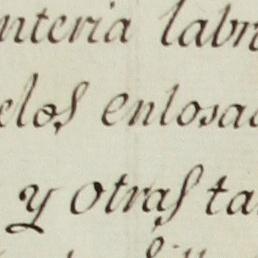 nteria labr
elos enlosad
y otras ta